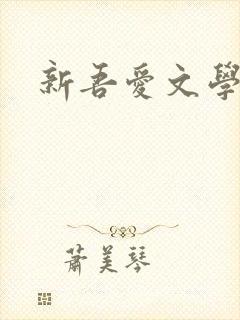 新吾愛文學
蕭美琴